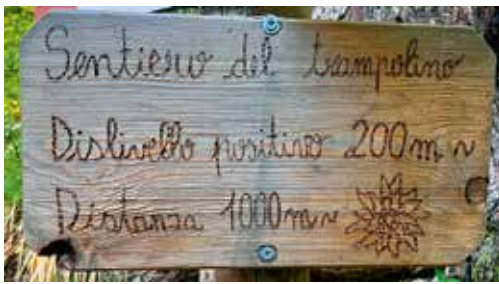 Sentiero del trampolino
Dislivello positivo 200m ~
Distanza 1000m ~